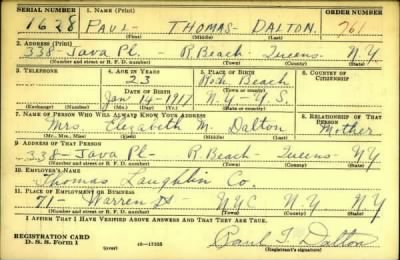 SERIAL NUMBER 1. NAME (Print) ORDER NUMBER
1628 PAUL THOMAS DALTON. 761
(First) (Middle) (Last)
2. ADDRESS (Print)
338- Java Pl. - R. Beach - Queens - N.Y.
(Number and street or R. F. D. number) (Town) (County) (State)
3. TELEPHONE 4. AGE IN YEARS 5. PLACE OF BIRTH 6. COUNTRY OF CITIZENSHIP
23 Rock. Beach
DATE OF BIRTH (Town or county)
Jan 14-1917 N.Y. U.S.
(Exchange) (Number) (Mo.) (Day) (Yr.) (State or country)
7. NAME OF PERSON WHO WILL ALWAYS KNOW YOUR ADDRESS 8. RELATIONSHIP OF THAT PERSON
Mrs. Elizabeth M. Dalton Mother
(Mr., Mrs., Miss) (First) (Middle) (Last)
9. ADDRESS OF THAT PERSON
338- Java Pl- R. Beach - Queens - N.Y
(Number and street or R. F. D. number) (Town) (County) (State)
10. EMPLOYER'S NAME
Thomas Laughlin Co.
11. PLACE OF EMPLOYMENT OR BUSINESS
71- Warren St- NYC NY NY
(Number and street or R. F. D. number) (Town) (County) (State)
I AFFIRM THAT I HAVE VERIFIED ABOVE ANSWERS AND THAT THEY ARE TRUE.
REGISTRATION CARD
D. S. S. Form 1 (over) 16-17105 Paul T. Dalton
(Registrant's signature)